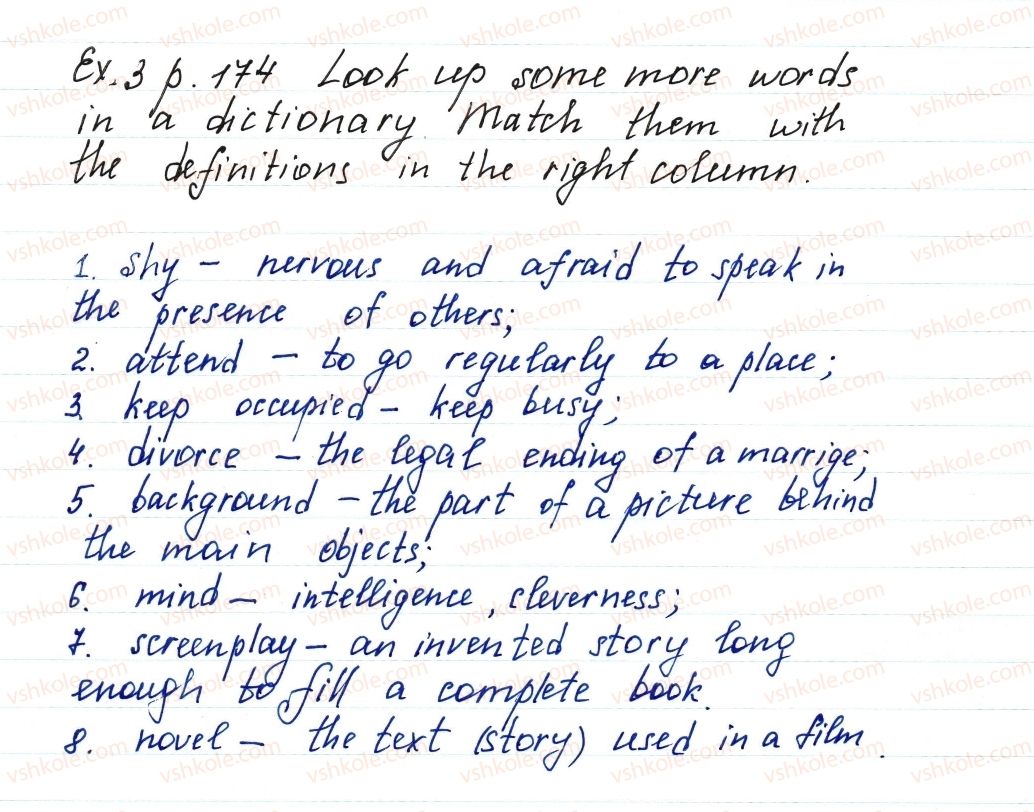 Ex. 3 p. 174 Look up some more words
in a dictionary. Match them with
the definitions in the right column.
1. Shy – nervous and afraid to speak in
the presence of others;
2. attend – to go regularly to a place;
3. keep occupied – keep busy;
4. divorce – the legal ending of a marrige;
5. background – the part of a picture behind
the main objects;
6. mind – intelligence, cleverness;
7. screenplay – an invented story long
enough to fill a complete book.
8. novel – the text (story) used in a film.